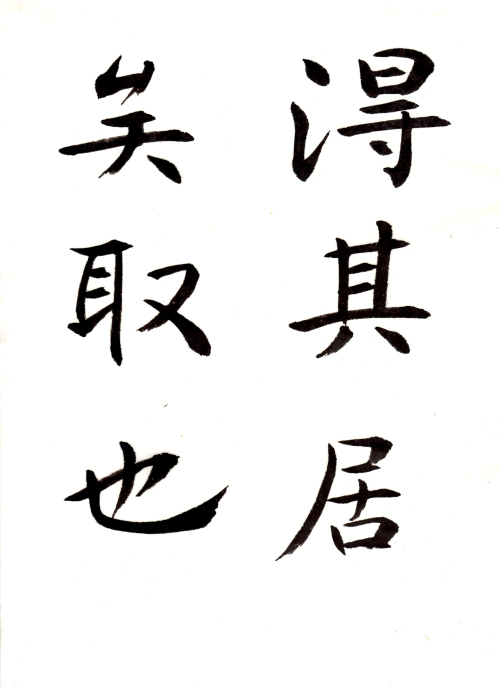 得其居
矣取也